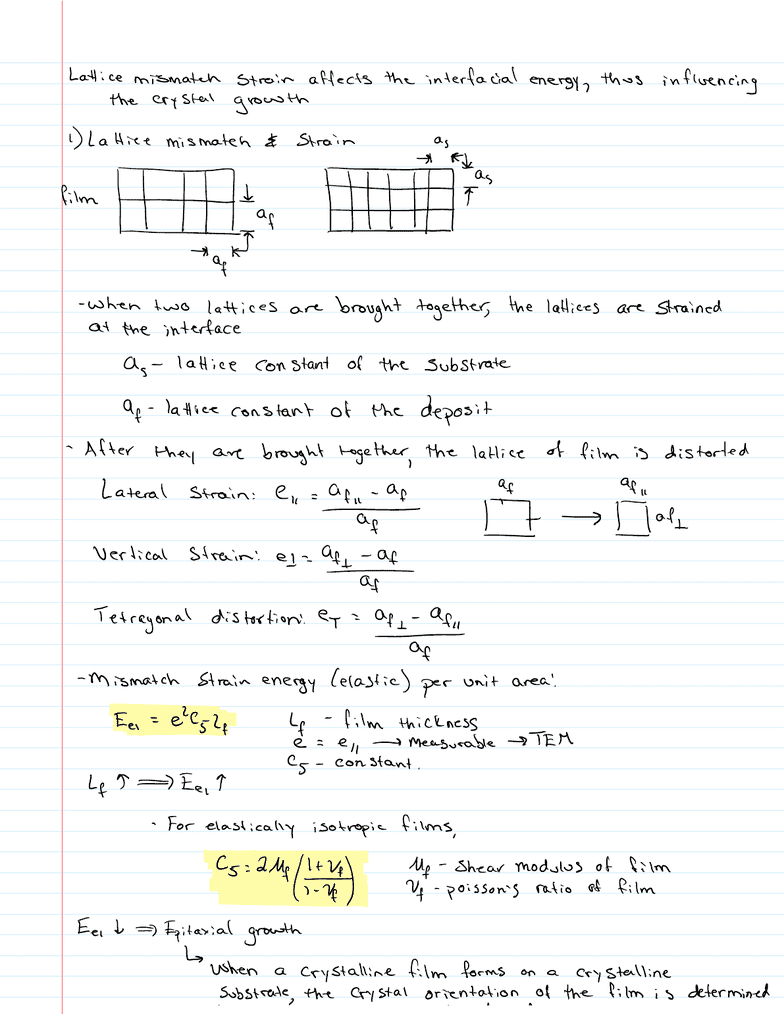 Lattice mismatch strain affects the interfacial energy, thus influencing
the crystal growth
1) Lattice mismatch & Strain
a_s
a_s
film
a_f
a_f
- When two lattices are brought together, the lattices are strained
at the interface
a_s - lattice constant of the substrate
a_f - lattice constant of the deposit
- After they are brought together, the lattice of film is distorted
Lateral Strain: e_∥ = (a_f∥ - a_f) / a_f
a_f → a_f∥ a_f⊥
Vertical Strain: e_⊥ = (a_f⊥ - a_f) / a_f
Tetragonal distortion: e_T = (a_f⊥ - a_f∥) / a_f
- Mismatch Strain energy (elastic) per unit area:
E_el = e²C_5L_f
L_f - film thickness
e = e_∥ → Measurable → TEM
C_5 - constant.
L_f ↑ ⟹ E_el ↑
- For elastically isotropic films,
C_5 = 2μ_f ((1+ν_f) / (1-ν_f))
μ_f - Shear modulus of film
ν_f - poisson's ratio of film
E_el ↓ ⟹ Epitaxial growth
↳ When a crystalline film forms on a crystalline
substrate, the crystal orientation of the film is determined